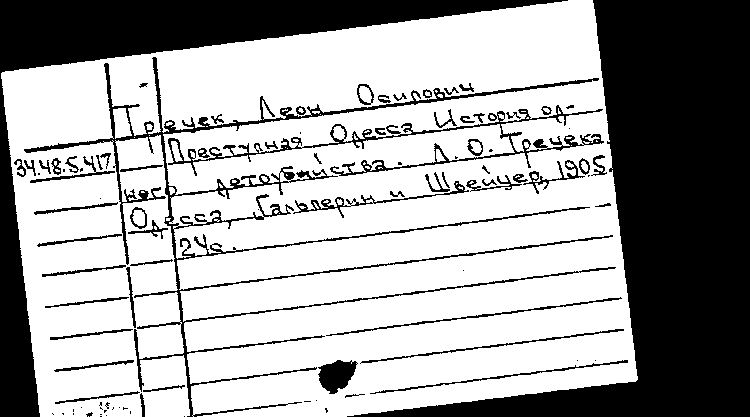 Тречек, Леон Осипович
34.48.5.417.
Преступная Одесса. История од-
ного детоубийства. Л. О. Тречека.
Одесса, Гальперин и Швейцер, 1905.
24с.